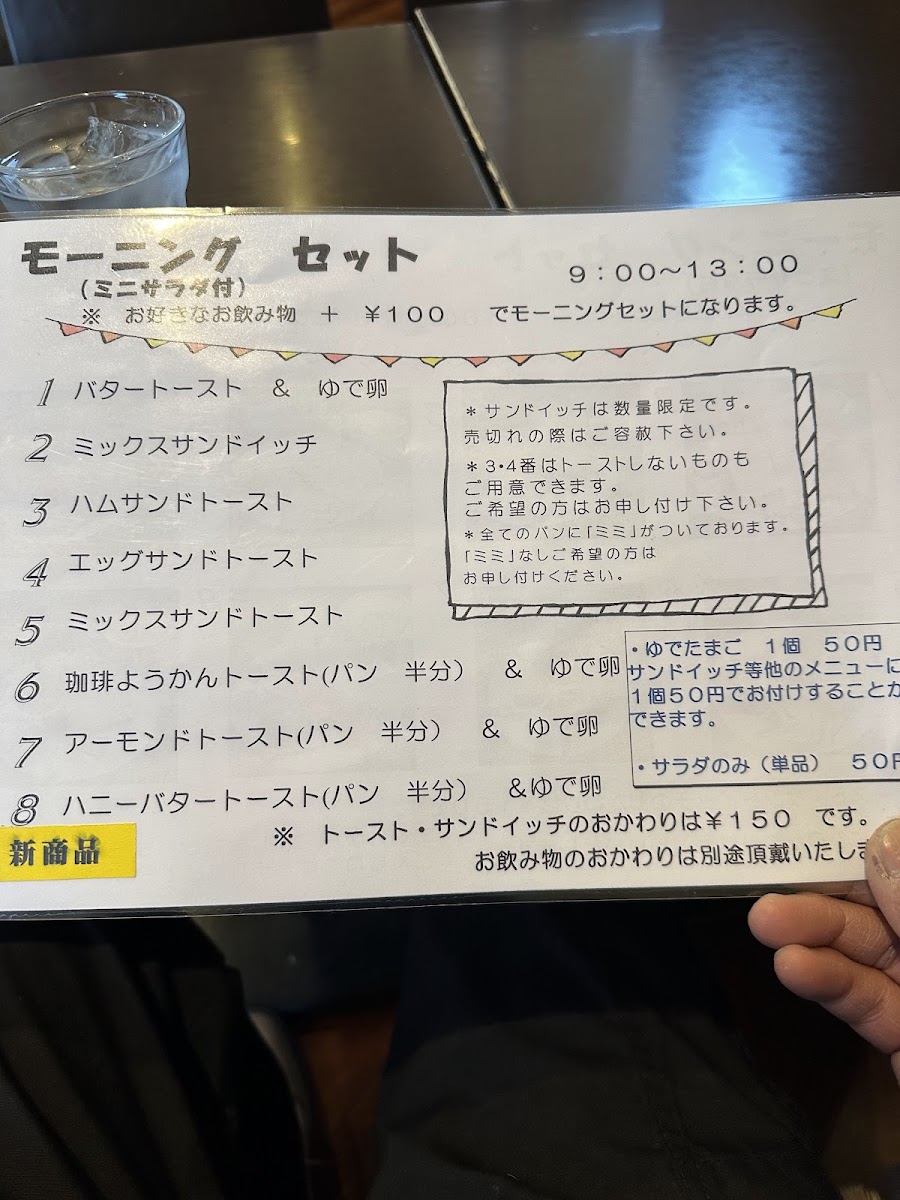 モーニング　セット
(ミニサラダ付)
9：00～13：00
※　お好きなお飲み物　＋　￥100　でモーニングセットになります。
1 バタートースト　＆　ゆで卵
2 ミックスサンドイッチ
3 ハムサンドトースト
4 エッグサンドトースト
5 ミックスサンドトースト
6 珈琲ようかんトースト(パン　半分)　＆　ゆで卵
7 アーモンドトースト(パン　半分)　＆　ゆで卵
8 ハニーバタートースト(パン　半分)　＆ゆで卵
新商品
＊サンドイッチは数量限定です。
売切れの際はご容赦下さい。
＊3・4番はトーストしないものも
ご用意できます。
ご希望の方はお申し付け下さい。
＊全てのパンに｢ミミ｣がついております。
｢ミミ｣なしご希望の方は
お申し付けください。
・ゆでたまご　1個　50円
サンドイッチ等他のメニューに
1個50円でお付けすることが
できます。
・サラダのみ（単品）　50円
※　トースト・サンドイッチのおかわりは￥150　です。
お飲み物のおかわりは別途頂戴いたしま